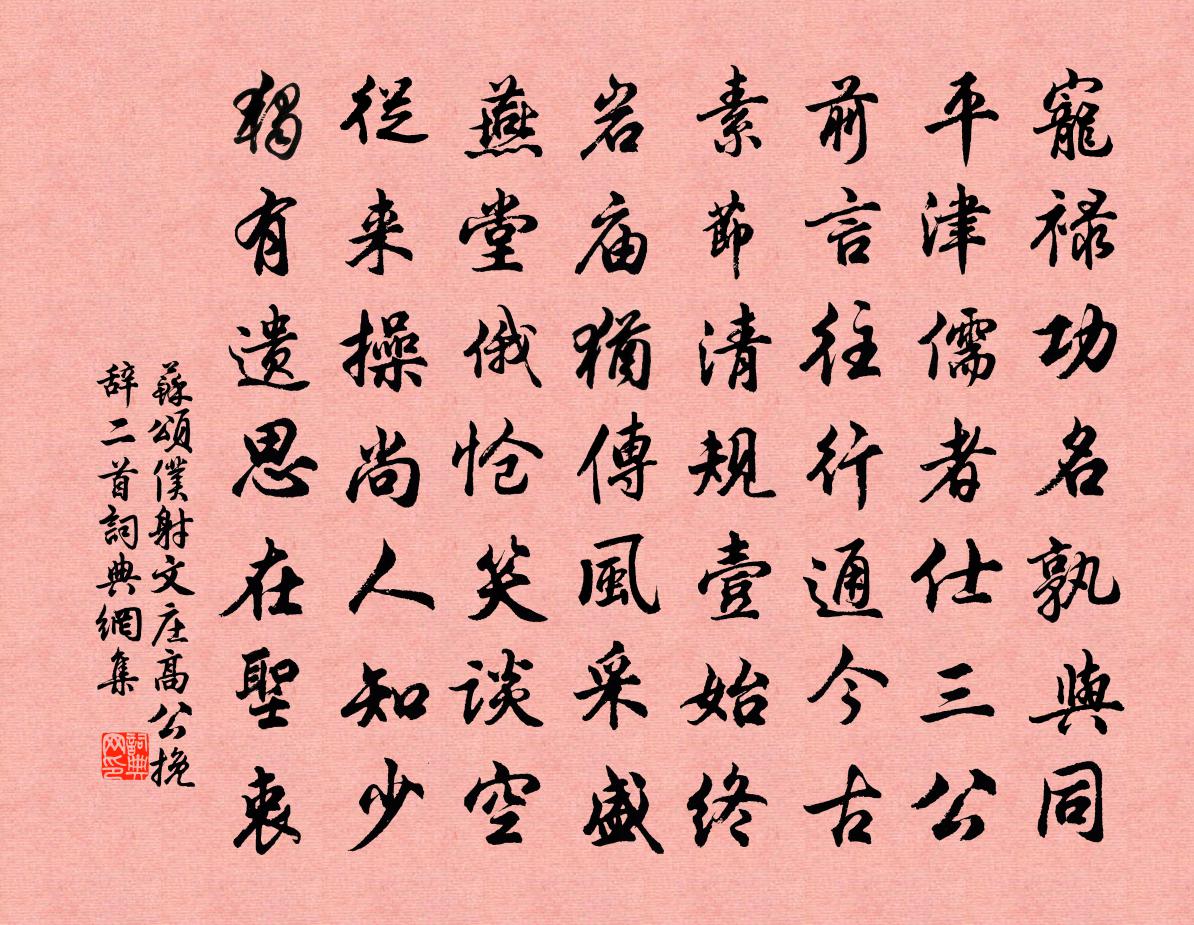 寵禄功名孰與同
平津儒者仕三公
前言往行通今古
素節清規壹始终
岩庙猶傳風采盛
燕堂俄怆笑谈空
從来操尚人知少
獨有遗思在聖衷
蘇頌僕射文庄高公挽
辞二首詞典網集
詞典网印